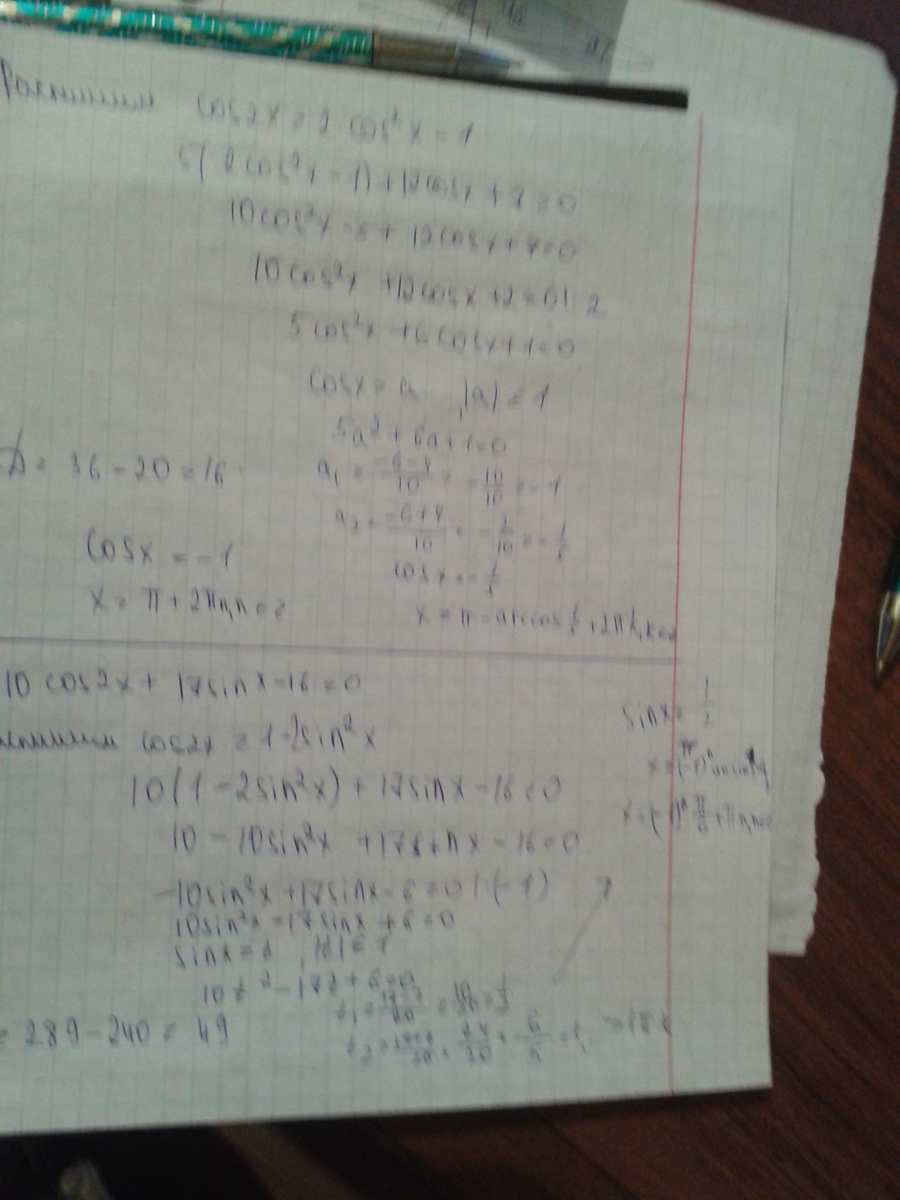 Распишем cos2x = 2 cos²x - 1
5(2cos²x - 1) + 12cosx + 7 = 0
10cos²x - 5 + 12cosx + 7 = 0
10cos²x + 12cosx + 2 = 0 | : 2
5cos²x + 6cosx + 1 = 0
cosx = a , |a| ≤ 1
5a² + 6a + 1 = 0
D = 36 - 20 = 16
a₁ = (-6-4)/10 = -10/10 = -1
a₂ = (-6+4)/10 = -2/10 = -1/5
cosx = -1
cosx = -1/5
x = π + 2πn, n ∈ z
x = π - arccos 1/5 + 2πk, k ∈ z
10 cos2x + 17sinx - 16 = 0
cos2x = 1 - 2sin²x
10(1 - 2sin²x) + 17sinx - 16 = 0
10 - 10sin²x + 17sinx - 16 = 0
-10sin²x + 17sinx - 6 = 0 | (-1)
10sin²x - 17sinx + 6 = 0
sinx = t , |t| ≤ 1
10t² - 17t + 6 = 0
= 289 - 240 = 49
t₁ = (17-7)/20 = 10/20 = 1/2
t₂ = (17+7)/20 = 24/20 = 6/5 = 1,
sinx = 1/2
x = (-1)ⁿ π/6 + πn, n ∈ z